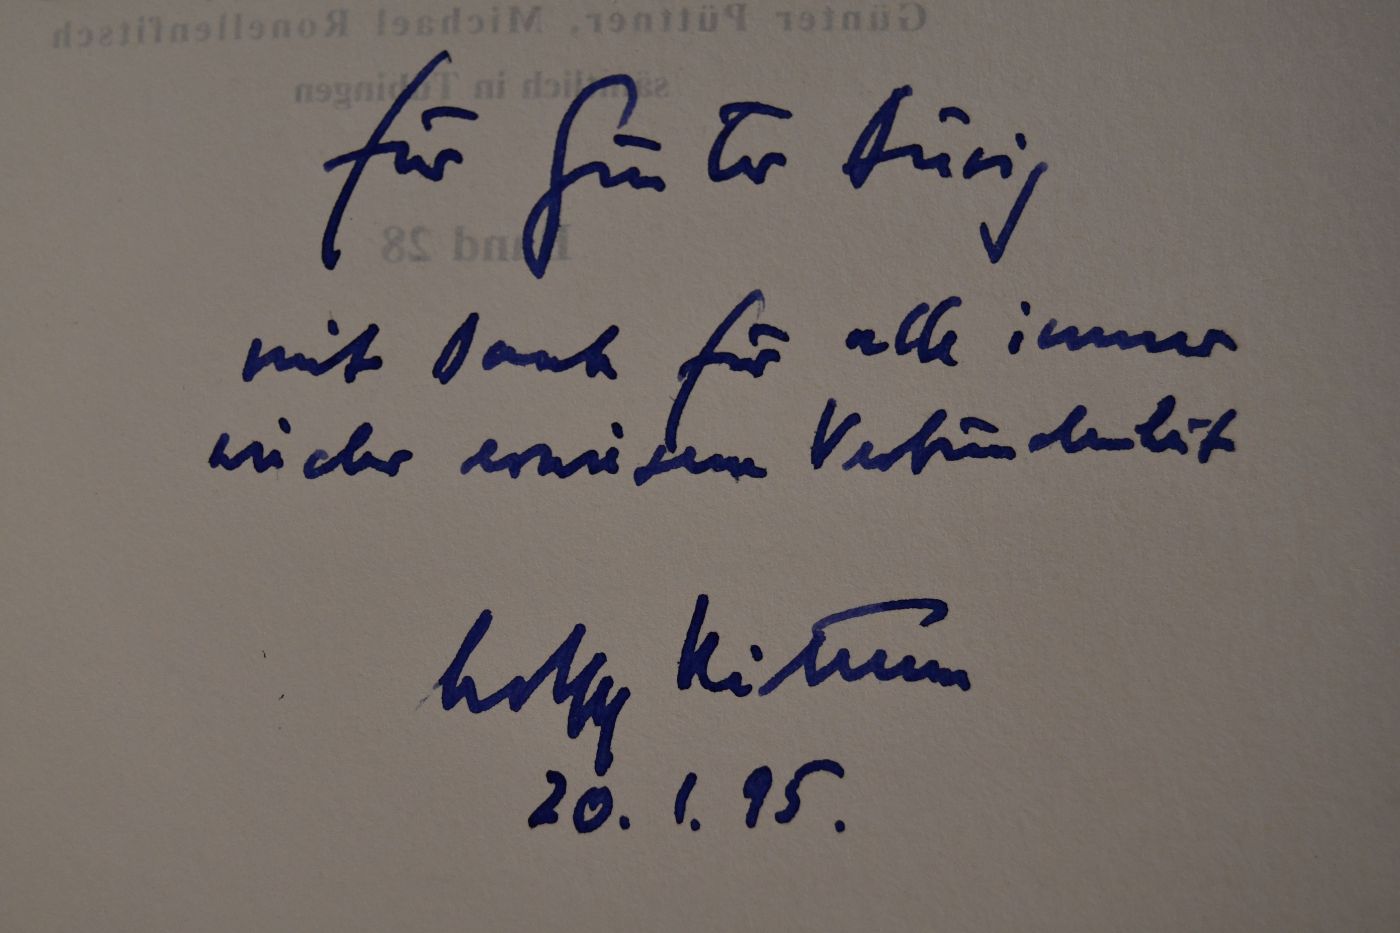 Günter Püttner, Michael Ronellenfitsch
sämtlich in Tübingen
für Günter Dürig
Band 28
mit Dank für alle immer
wieder erwiesene Verbundenheit
20. 1. 95.